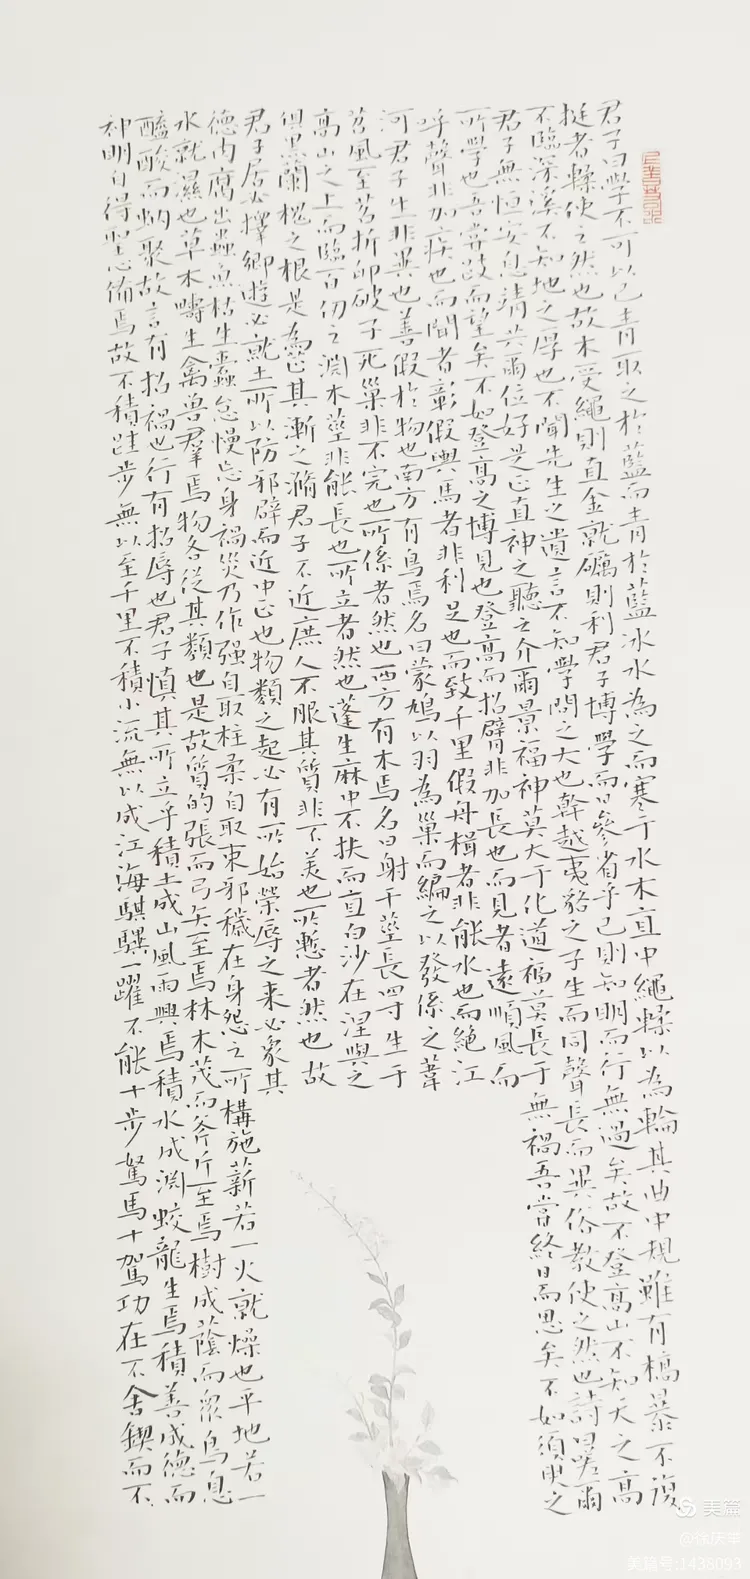 君子曰學不可以已青取之於藍而青於藍冰水為之而寒于水木直中繩輮以為輪其曲中規雖有槁暴不復
挺者輮使之然也故木受繩則直金就礪則利君子博學而日參省乎己則知明而行無過矣故不登高山不知天之高
不臨深溪不知地之厚也不聞先生之遺言不知學問之大也幹越夷貉之子生而同聲長而異俗教使之然也詩曰嗟爾
君子無恒安息靖共爾位好是正直神之聽之介爾景福神莫大于化道福莫長于無禍吾嘗終日而思矣不如須臾之
所學也吾嘗跂而望矣不如登高之博見也登高而招臂非加長也而見者遠順風而
呼聲非加疾也而聞者彰假輿馬者非利足也而致千里假舟楫者非能水也而絕江
河君子生非異也善假於物也南方有鳥焉名曰蒙鳩以羽為巢而編之以發係之葦
苕風至苕折卵破子死巢非不完也所係者然也西方有木焉名曰射干莖長四寸生于
高山之上而臨百仞之淵木莖非能長也所立者然也蓬生麻中不扶而直白沙在涅與之
俱黑蘭槐之根是為芷其漸之滫君子不近庶人不服其質非不美也所漸者然也故
君子居必擇鄉遊必就士所以防邪辟而近中正也物類之起必有所始榮辱之來必象其
德肉腐出蟲魚枯生蠹怠慢忘身禍災乃作强自取柱柔自取束邪穢在身怨之所構施薪若一火就燥也平地若一
水就濕也草木疇生禽獸群焉物各從其類也是故質的張而弓矢至焉林木茂而斧斤至焉樹成蔭而眾鳥息
醯酸而蚋聚故言有招禍也行有招辱也君子慎其所立乎積土成山風雨興焉積水成淵蛟龍生焉積善成德而
神明自得聖心備焉故不積跬步無以至千里不積小流無以成江海騏驥一躍不能十步駑馬十駕功在不舍鍥而不
美篇
美篇号:1438093